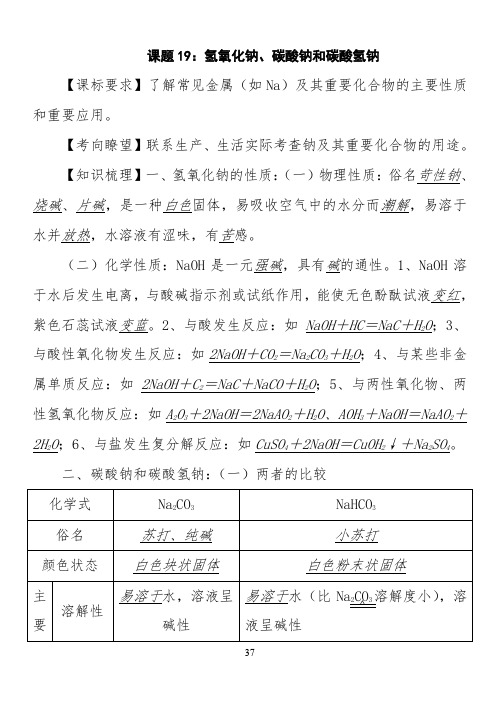 课题19：氢氧化钠、碳酸钠和碳酸氢钠
【课标要求】了解常见金属（如Na）及其重要化合物的主要性质
和重要应用。
【考向瞭望】联系生产、生活实际考查钠及其重要化合物的用途。
【知识梳理】一、氢氧化钠的性质：（一）物理性质：俗名苛性钠、
烧碱、片碱，是一种白色固体，易吸收空气中的水分而潮解，易溶于
水并放热，水溶液有涩味，有苦感。
（二）化学性质：NaOH是一元强碱，具有碱的通性。1、NaOH溶
于水后发生电离，与酸碱指示剂或试纸作用，能使无色酚酞试液变红，
紫色石蕊试液变蓝。2、与酸发生反应：如 NaOH＋HC＝NaC＋H₂O；3、
与酸性氧化物发生反应：如2NaOH＋CO₂＝Na₂CO₃＋H₂O；4、与某些非金
属单质反应：如 2NaOH＋C₂＝NaC＋NaCO＋H₂O；5、与两性氧化物、两
性氢氧化物反应：如A₂O₃＋2NaOH＝2NaAO₂＋H₂O、AOH₃＋NaOH＝NaAO₂＋
2H₂O；6、与盐发生复分解反应：如CuSO₄＋2NaOH＝CuOH₂↓＋Na₂SO₄。
二、碳酸钠和碳酸氢钠：（一）两者的比较
化学式 Na₂CO₃ NaHCO₃
俗名 苏打、纯碱 小苏打
颜色状态 白色块状固体 白色粉末状固体
主要 溶解性 易溶于水，溶液呈 易溶于水（比Na₂CO₃溶解度小），溶
碱性 液呈碱性
37